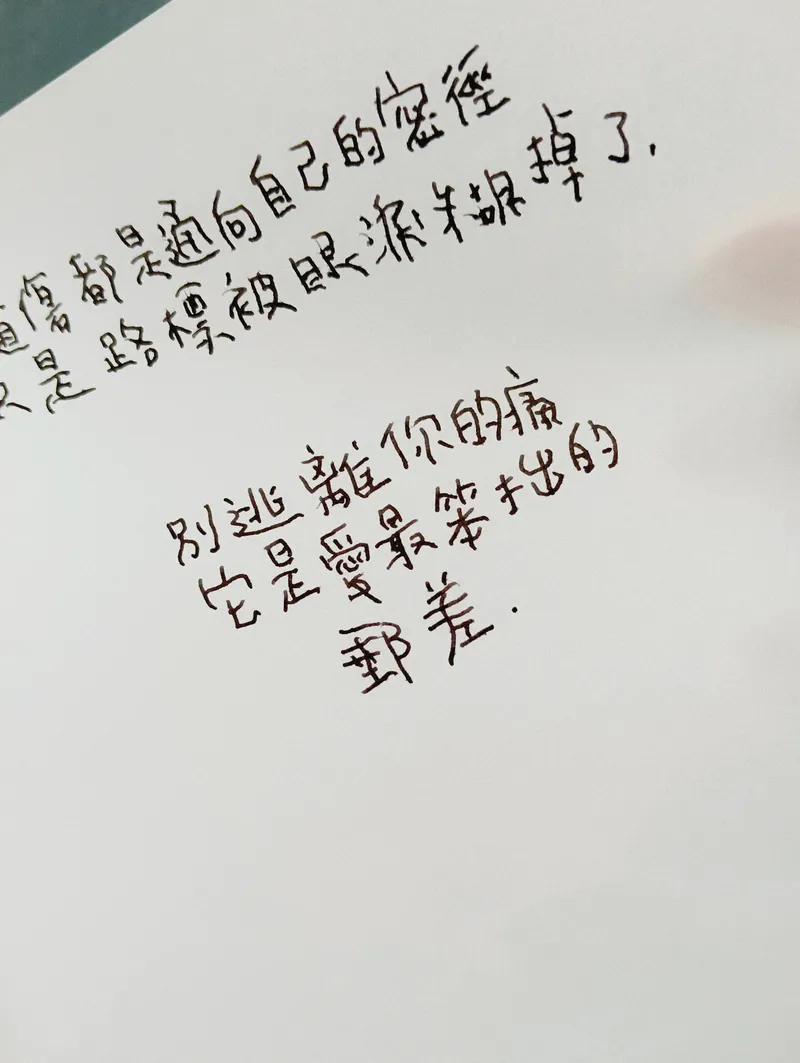 傷都是通向自己的密徑
是路標被眼淚糊掉了.
別逃離你的痛
它是愛最笨拙的
郵差.